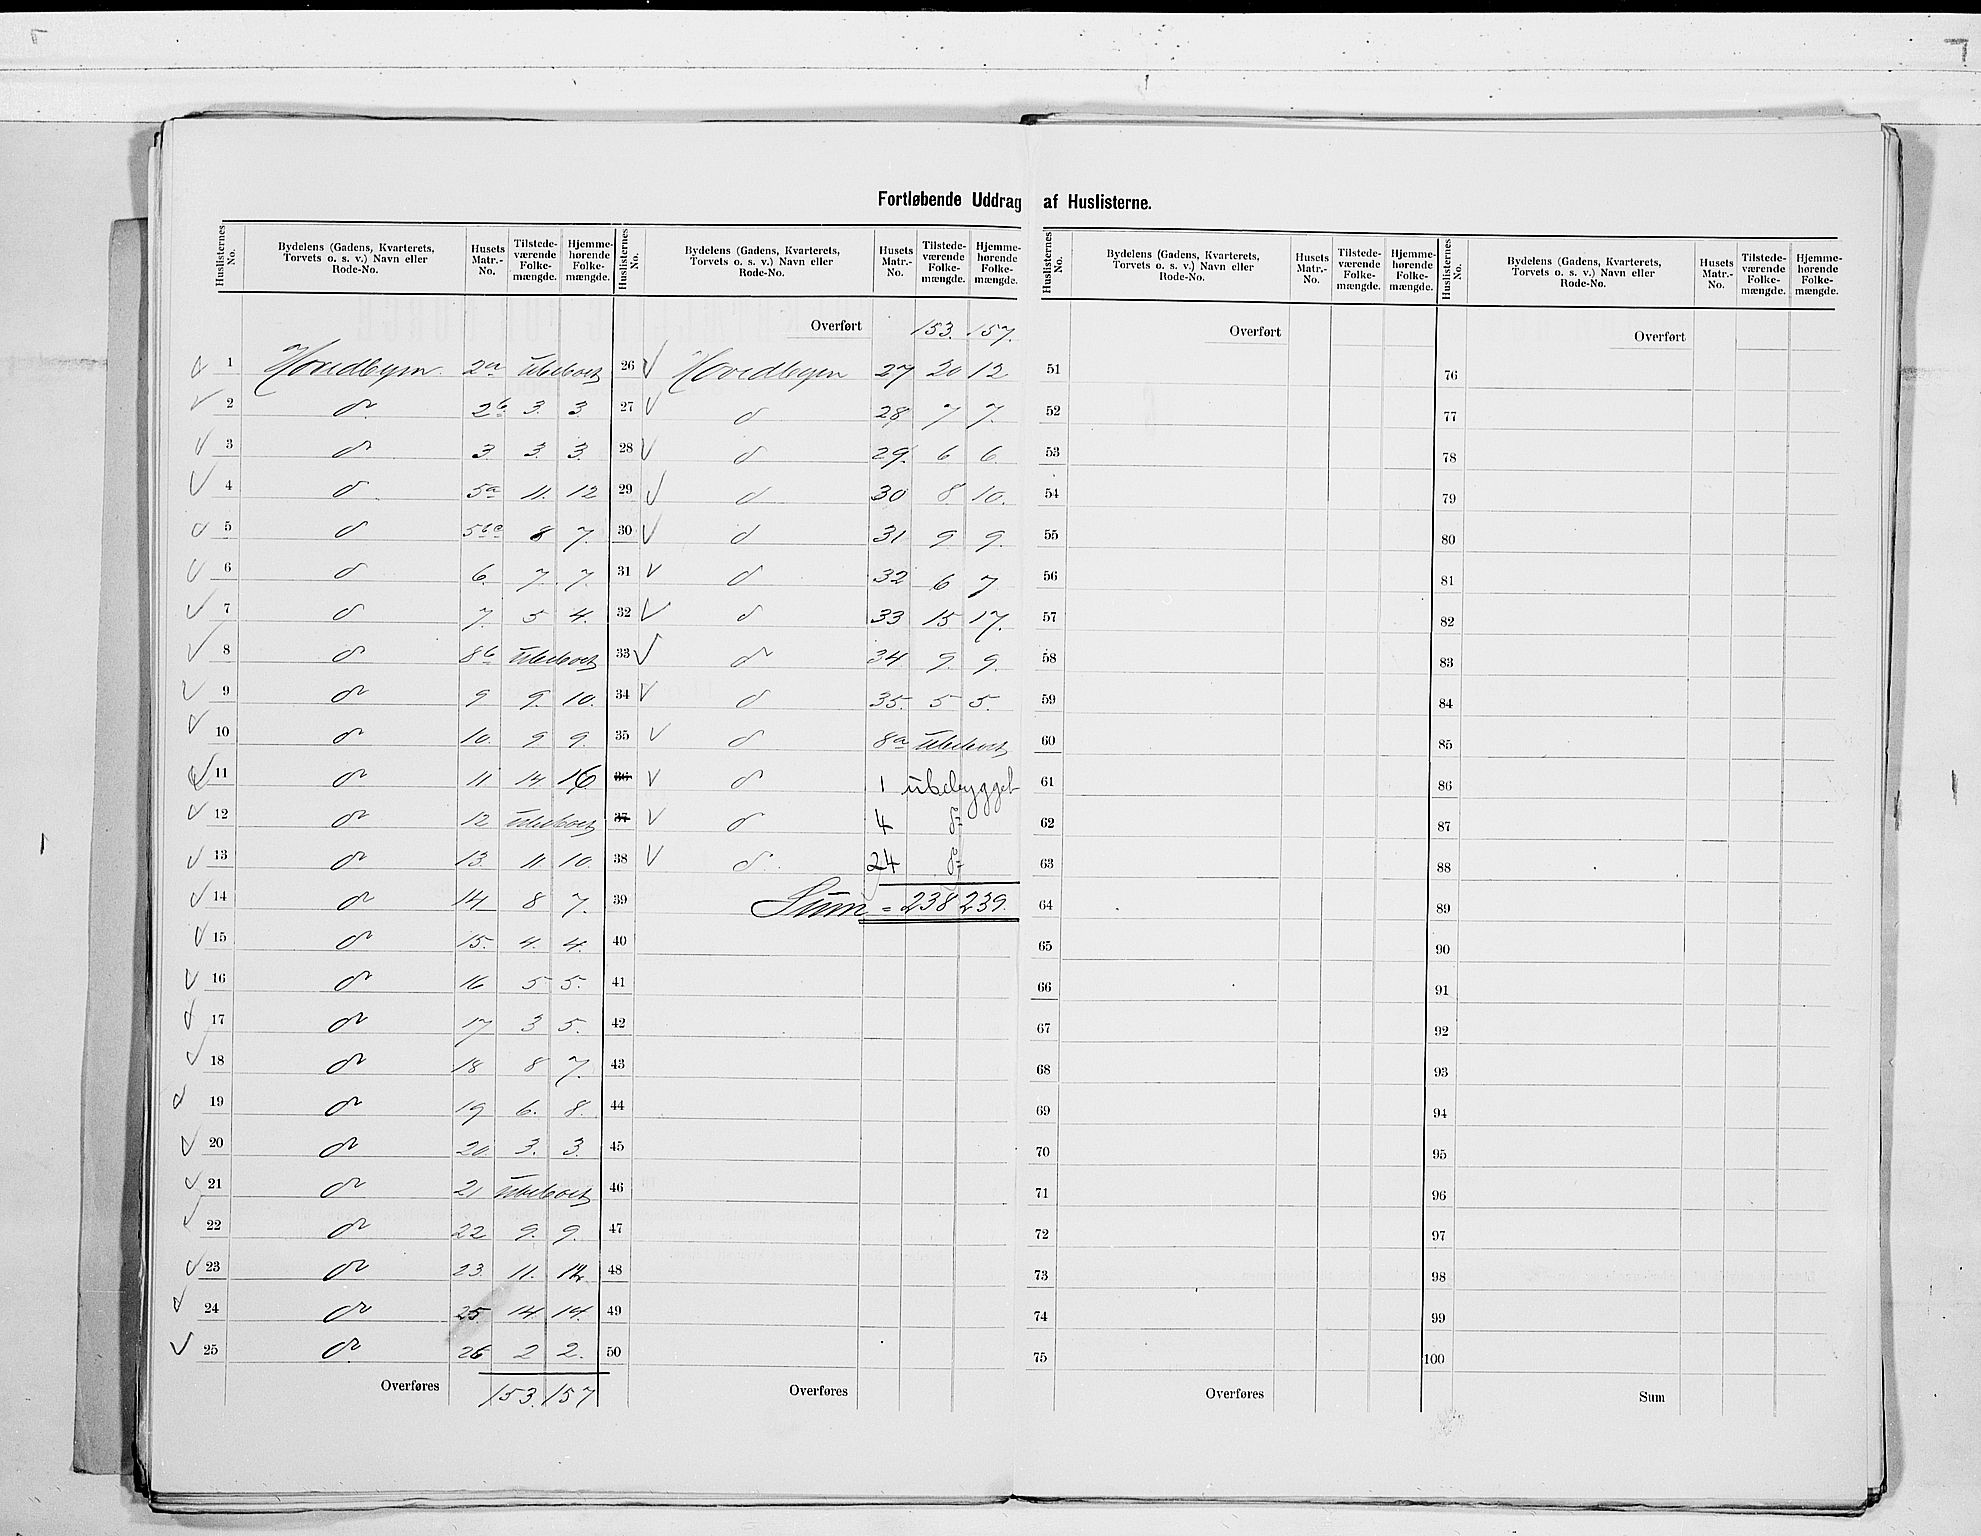 Fortløbende Uddrag af Huslisterne.
Huslisternes No. | Bydelens (Gadens, Kvarterets, Torvets o. s. v.) Navn eller Rode-No. | Husets Matr.-No. | Tilstedeværende Folkemængde. | Hjemmehørende Folkemængde. | Huslisternes No. | Bydelens (Gadens, Kvarterets, Torvets o. s. v.) Navn eller Rode-No. | Husets Matr.-No. | Tilstedeværende Folkemængde. | Hjemmehørende Folkemængde. | Huslisternes No. | Bydelens (Gadens, Kvarterets, Torvets o. s. v.) Navn eller Rode-No. | Husets Matr.-No. | Tilstedeværende Folkemængde. | Hjemmehørende Folkemængde. | Huslisternes No. | Bydelens (Gadens, Kvarterets, Torvets o. s. v.) Navn eller Rode-No. | Husets Matr.-No. | Tilstedeværende Folkemængde. | Hjemmehørende Folkemængde.
1 Hovedbyen. 2a Ubeboet
2 do 2b 3. 3
3 do 3. 3. 3.
4 do 5a 11. 12
5 do 5bc 8 7.
6 do 6. 7. 7.
7 do 7. 5 4.
8 do 8b Ubeboet
9 do 9 9. 10.
10 do 10. 9 9.
11 do 11 14 16
12 do 12 Ubeboet
13 do 13. 11 10.
14 do 14 8 7.
15 do 15. 4. 4.
16 do 16 5 5.
17 do 17 3 5.
18 do 18 8 7.
19 do 19 6. 8.
20 do 20 3. 3.
21 do 21 Ubeboet
22 do 22 9. 9.
23 do 23. 11. 12.
24 do 25. 14 14.
25 do 26 2 2.
Overføres 153. 157
Overført 153. 157.
26 Hovedbyen 27 20 12
27 do 28 7 7.
28 do 29. 6 6.
29 do 30 8 10.
30 do 31 9. 9.
31 do 32 6 7
32 do 33 15 17.
33 do 34 9. 9.
34 do 35. 5 5.
35 do 8a Ubeboet
36 do 1 ubebygget
37 do 4 do
38 do 24 do
39 Sum = 238 239.
40
41
42
43
44
45
46
47
48
49
50
Overføres
Overført
51
52
53
54
55
56
57
58
59
60
61
62
63
64
65
66
67
68
69
70
71
72
73
74
75
Overføres
Overført
76
77
78
79
80
81
82
83
84
85
86
87
88
89
90
91
92
93
94
95
96
97
98
99
100
Sum